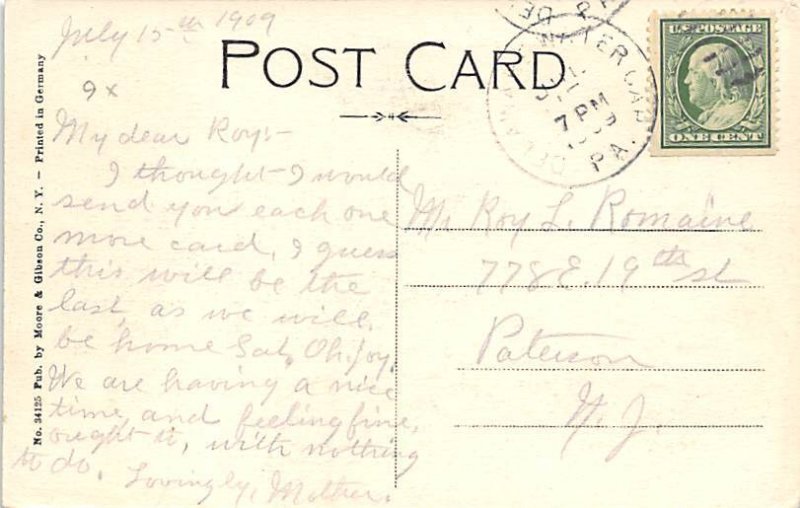 July 15th 1909
POST CARD
9x
My dear Roy:-
I thought I would
send you each one
more card, I guess
this will be the
last, as we will
be home Sat, Oh! joy.
We are having a nice
time, and feeling fine,
ought to, with nothing
to do. Lovingly, Mother.
Mr Roy L. Romaine
778 E. 19th st
Paterson
N. J.
U.S. POSTAGE
ONE CENT
DELAWARE WATER GAP
7 PM
PA.
No. 34125 Pub. by Moore & Gibson Co., N. Y. — Printed in Germany